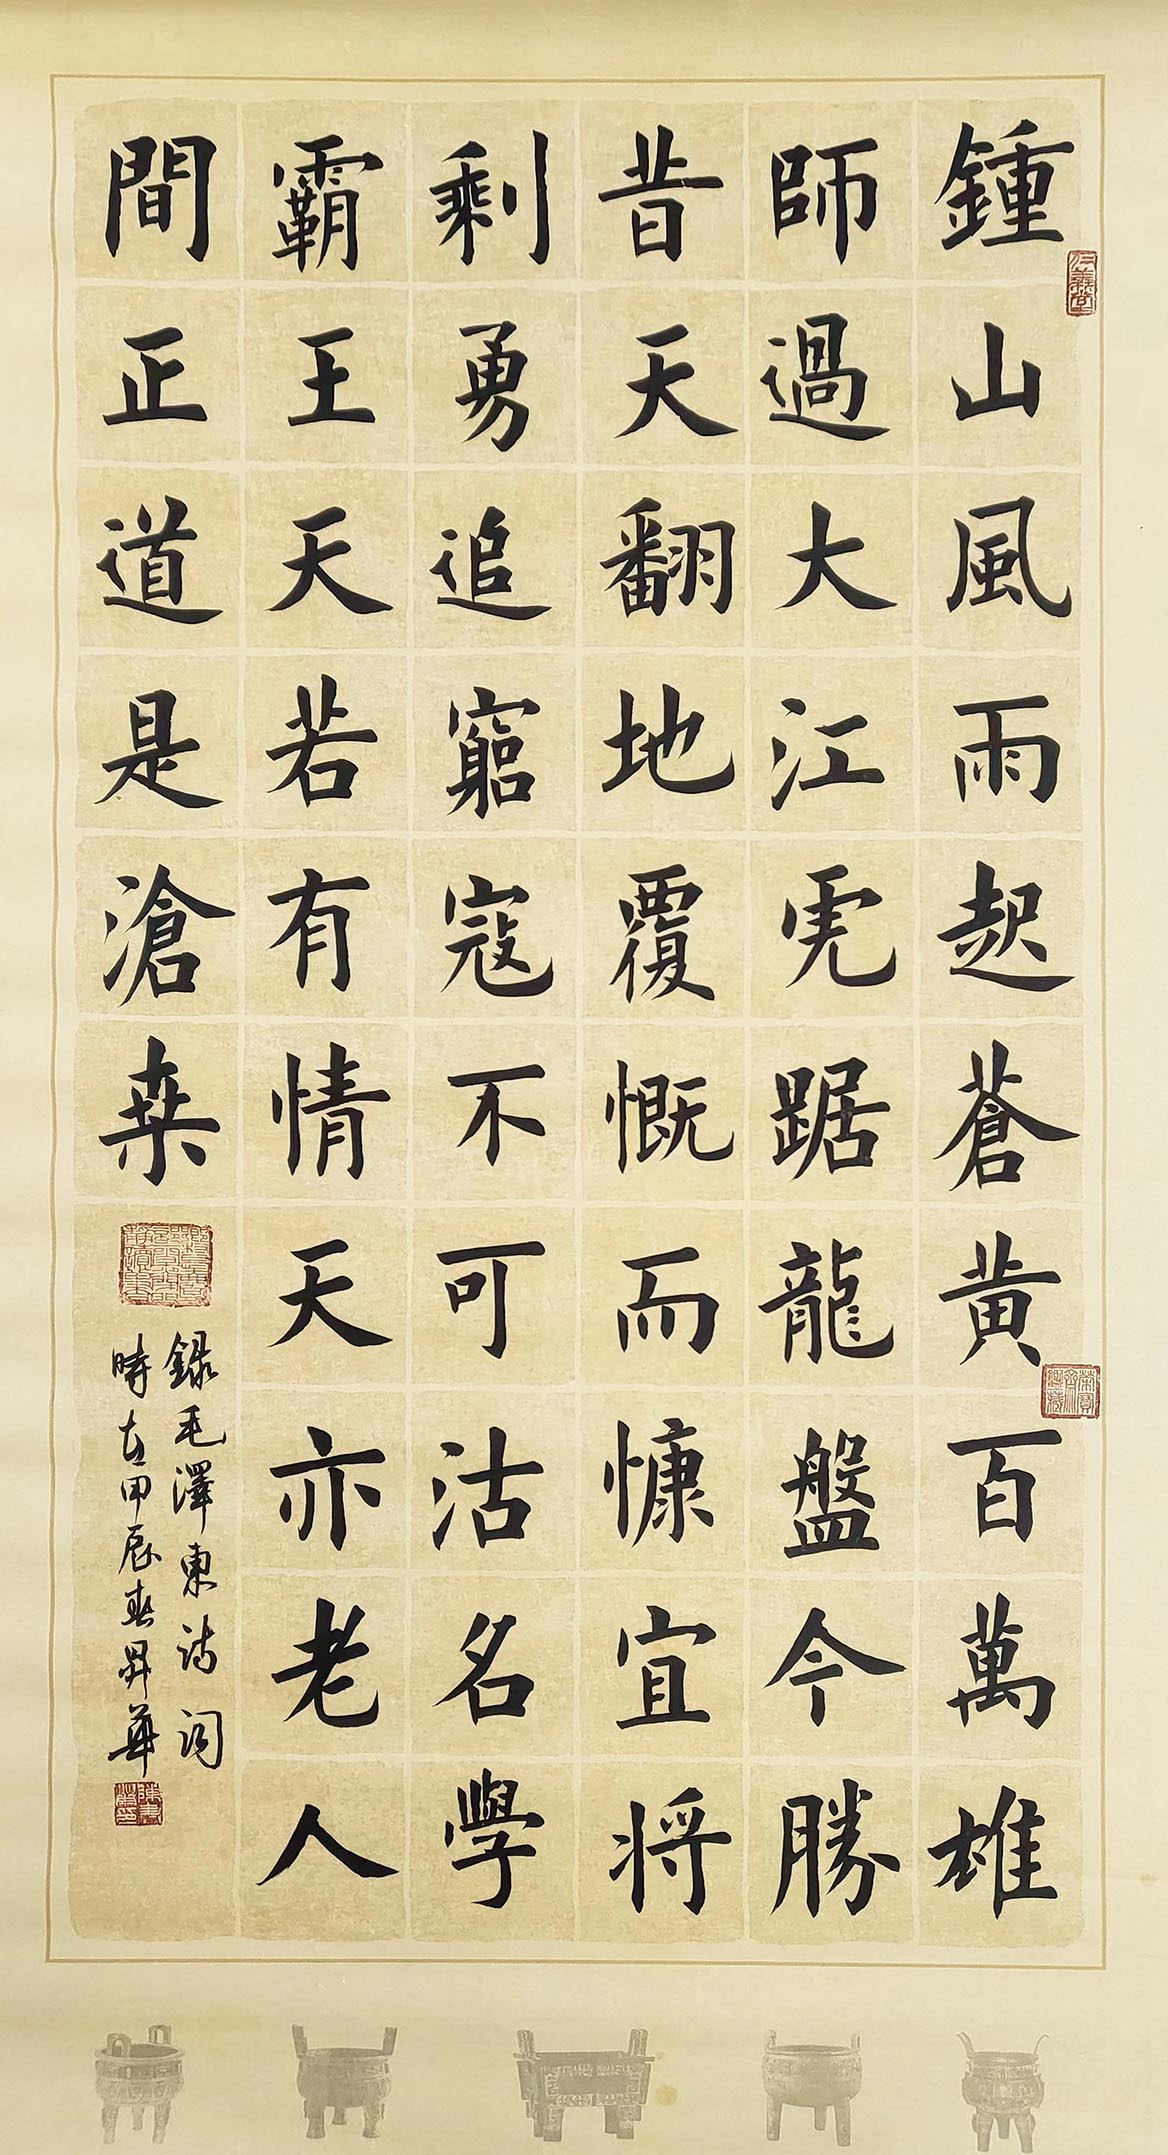 鍾山風雨起蒼黄百萬雄
師過大江虎踞龍盤今勝
昔天翻地覆慨而慷宜将
剩勇追窮寇不可沽名學
霸王天若有情天亦老人
間正道是滄桒
錄毛澤東詩词
時在甲辰春昇華